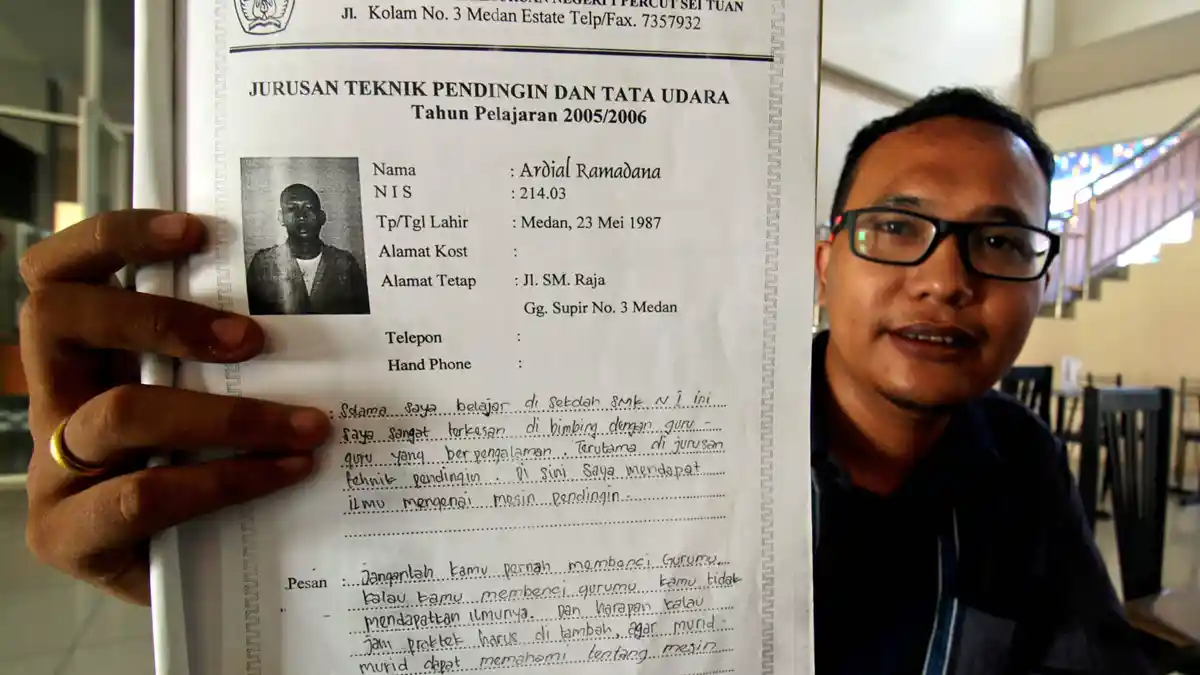 NEGERI 1 PERCUT SEI TUAN
Jl. Kolam No. 3 Medan Estate Telp/Fax. 7357932
JURUSAN TEKNIK PENDINGIN DAN TATA UDARA
Tahun Pelajaran 2005/2006
Nama : Ardial Ramadana
N I S : 214.03
Tp/Tgl Lahir : Medan, 23 Mei 1987
Alamat Kost :
Alamat Tetap : Jl. SM. Raja
Gg. Supir No. 3 Medan
Telepon :
Hand Phone :
: Selama saya belajar di sekolah SMK N 1 ini
saya sangat terkesan di bimbing dengan guru -
guru yang berpengalaman. Terutama di jurusan
tehnik pendingin. Di sini saya mendapat
ilmu mengenai mesin pendingin.
Pesan : Janganlah kamu pernah membenci Gurumu
kalau kamu membenci gurumu kamu tidak
mendapatkan ilmunya. Dan harapan kalau
jam praktek harus di tambah, agar murid-
murid dapat memahami tentang mesin